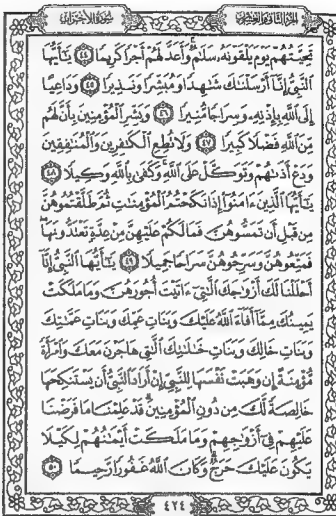 الجزء الثاني والعشرون
سورة الأحزاب
تَحِيَّتُهُمْ يَوْمَ يَلْقَوْنَهُۥ سَلَٰمٌ وَأَعَدَّ لَهُمْ أَجْرًا كَرِيمًا ٤٤ يَٰٓأَيُّهَا
ٱلنَّبِىُّ إِنَّآ أَرْسَلْنَٰكَ شَٰهِدًا وَمُبَشِّرًا وَنَذِيرًا ٤٥ وَدَاعِيًا
إِلَى ٱللَّهِ بِإِذْنِهِۦ وَسِرَاجًا مُّنِيرًا ٤٦ وَبَشِّرِ ٱلْمُؤْمِنِينَ بِأَنَّ لَهُم
مِّنَ ٱللَّهِ فَضْلًا كَبِيرًا ٤٧ وَلَا تُطِعِ ٱلْكَٰفِرِينَ وَٱلْمُنَٰفِقِينَ
وَدَعْ أَذَىٰهُمْ وَتَوَكَّلْ عَلَى ٱللَّهِ وَكَفَىٰ بِٱللَّهِ وَكِيلًا ٤٨
يَٰٓأَيُّهَا ٱلَّذِينَ ءَامَنُوٓا۟ إِذَا نَكَحْتُمُ ٱلْمُؤْمِنَٰتِ ثُمَّ طَلَّقْتُمُوهُنَّ
مِن قَبْلِ أَن تَمَسُّوهُنَّ فَمَا لَكُمْ عَلَيْهِنَّ مِنْ عِدَّةٍ تَعْتَدُّونَهَا
فَمَتِّعُوهُنَّ وَسَرِّحُوهُنَّ سَرَاحًا جَمِيلًا ٤٩ يَٰٓأَيُّهَا ٱلنَّبِىُّ إِنَّآ
أَحْلَلْنَا لَكَ أَزْوَٰجَكَ ٱلَّٰتِىٓ ءَاتَيْتَ أُجُورَهُنَّ وَمَا مَلَكَتْ
يَمِينُكَ مِمَّآ أَفَآءَ ٱللَّهُ عَلَيْكَ وَبَنَاتِ عَمِّكَ وَبَنَاتِ عَمَّٰتِكَ
وَبَنَاتِ خَالِكَ وَبَنَاتِ خَٰلَٰتِكَ ٱلَّٰتِى هَاجَرْنَ مَعَكَ وَٱمْرَأَةً
مُّؤْمِنَةً إِن وَهَبَتْ نَفْسَهَا لِلنَّبِىِّ إِنْ أَرَادَ ٱلنَّبِىُّ أَن يَسْتَنكِحَهَا
خَالِصَةً لَّكَ مِن دُونِ ٱلْمُؤْمِنِينَ قَدْ عَلِمْنَا مَا فَرَضْنَا
عَلَيْهِمْ فِىٓ أَزْوَٰجِهِمْ وَمَا مَلَكَتْ أَيْمَٰنُهُمْ لِكَيْلَا
يَكُونَ عَلَيْكَ حَرَجٌ وَكَانَ ٱللَّهُ غَفُورًا رَّحِيمًا ٥٠
٤٢٤